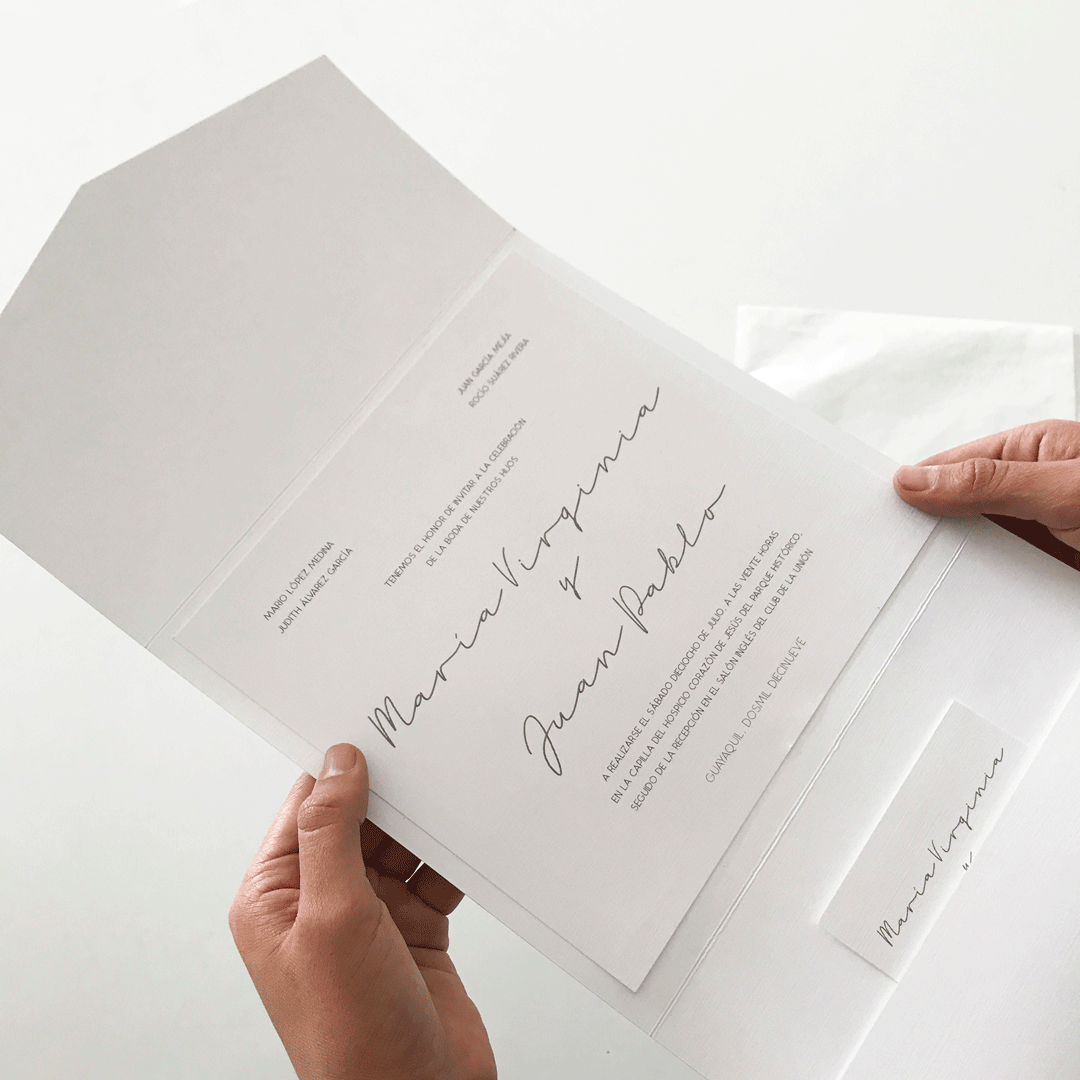 MARIO LÓPEZ MEDINA
JUDITH ÁLVAREZ GARCÍA
JUAN GARCÍA MEJÍA
ROCÍO SUÁREZ RIVERA
TENEMOS EL HONOR DE INVITAR A LA CELEBRACIÓN
DE LA BODA DE NUESTROS HIJOS
María Virginia
y
Juan Pablo
A REALIZARSE EL SÁBADO DIECIOCHO DE JULIO, A LAS VEINTE HORAS
EN LA CAPILLA DEL HOSPICIO CORAZÓN DE JESÚS DEL PARQUE HISTÓRICO.
SEGUIDO DE LA RECEPCIÓN EN EL SALÓN INGLÉS DEL CLUB DE LA UNIÓN
GUAYAQUIL, DOSMIL DIECINUEVE
María Virginia